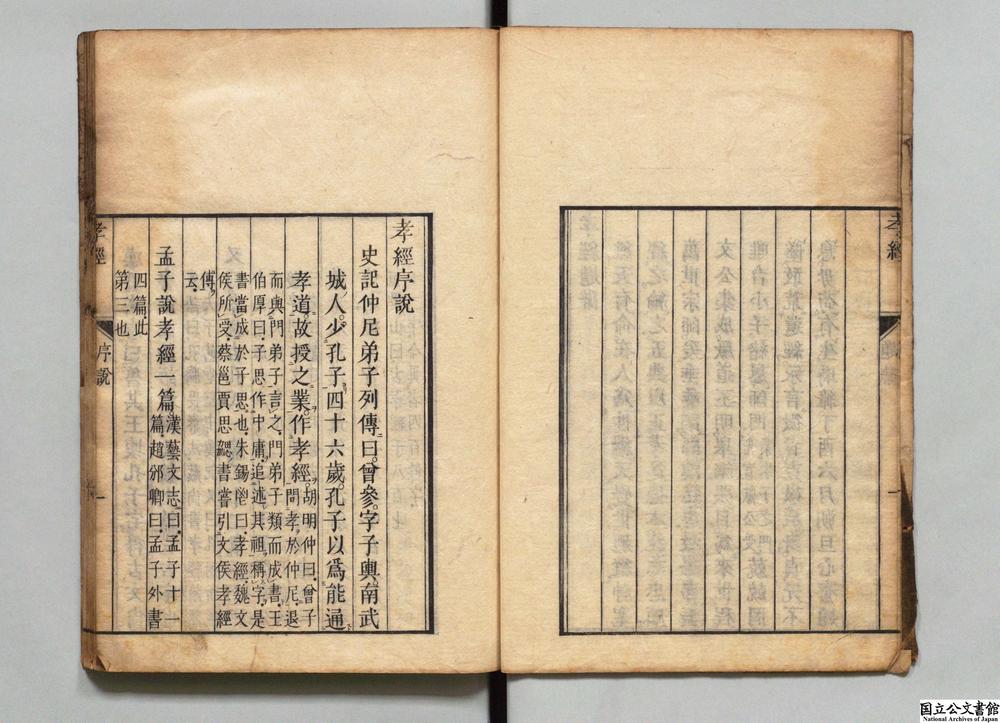 孝經
孝經序說
史記仲尼弟子列傳曰。曾參字子輿南武
城人。少孔子四十六歲。孔子以爲能通
孝道故授之業作孝經。胡明仲曰。曾子
問孝於仲尼。退
而與門弟子言之。門弟子類而成書。王
伯厚曰。子思作中庸。追述其祖稱字。是
書當成於子思也。朱錫鬯曰。孝經。魏文
侯所受。蔡邕賈思勰。書嘗引文侯孝經
傳
云。
孟子說孝經一篇漢藝文志。曰。孟子十一
篇。趙邠卿曰。孟子外書
四篇。此
第三也
孝經
序說
一
国立公文書館
National Archives of Japan